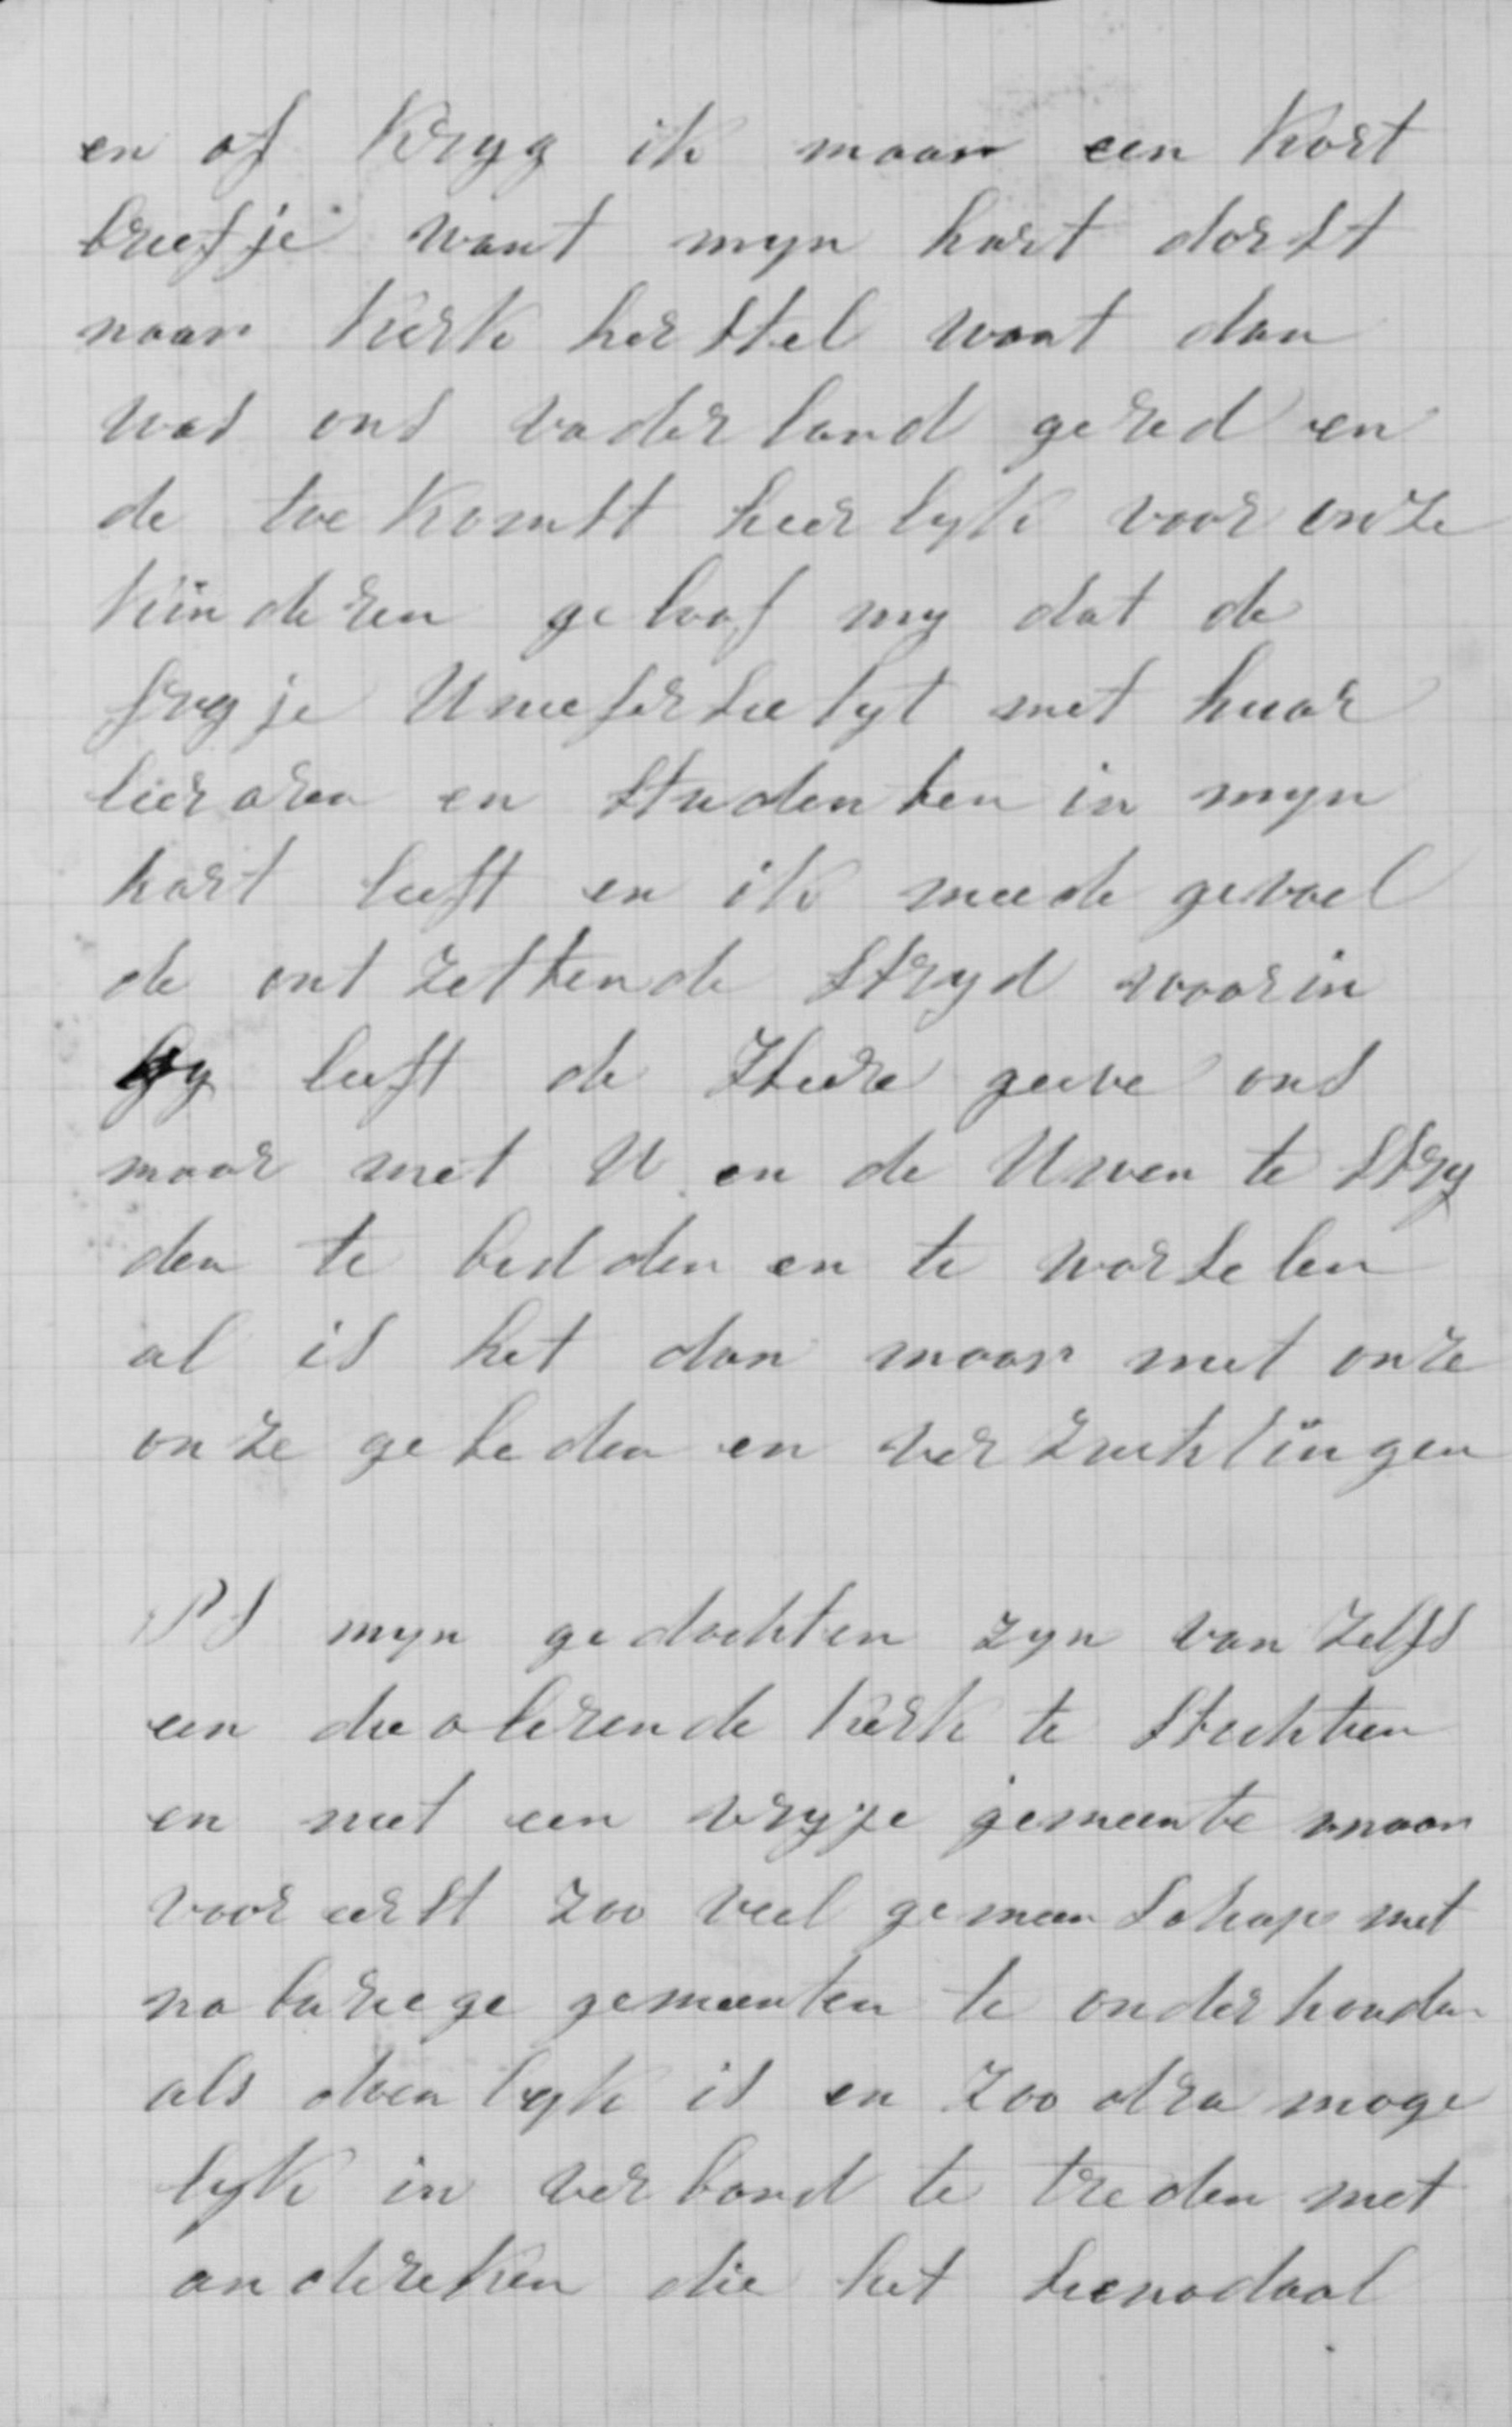 en of kryg ik maar een kort
breefje want myn hart dorst
naar kerk her stel want dan
was ons vader land gered en
de toe komst heer lyk voor onze
kin deren ge loof my dat de
fryje Uneefersetyt met huar
leer aren en studen ten in myn
hart leeft en ik meede gevoel
de ont zettende stryd waarin
gy leeft de Heere geeve ons
maar met U en de Uwen te stry
den te bidden en te worstelen
al is het dan maar met onze
onze ge beden en ver zuchtingen
PS myn gedachten zyn van zelfs
een doolerende kerk te stichten
en niet een vryje gemeente maar
voor eerst zoo veel gemeen schap met
na burege gemeenten te onder houden
als doen lyk is en zoo dra moge
lyk in ver band te treden met
an dere ken die het seenodaal